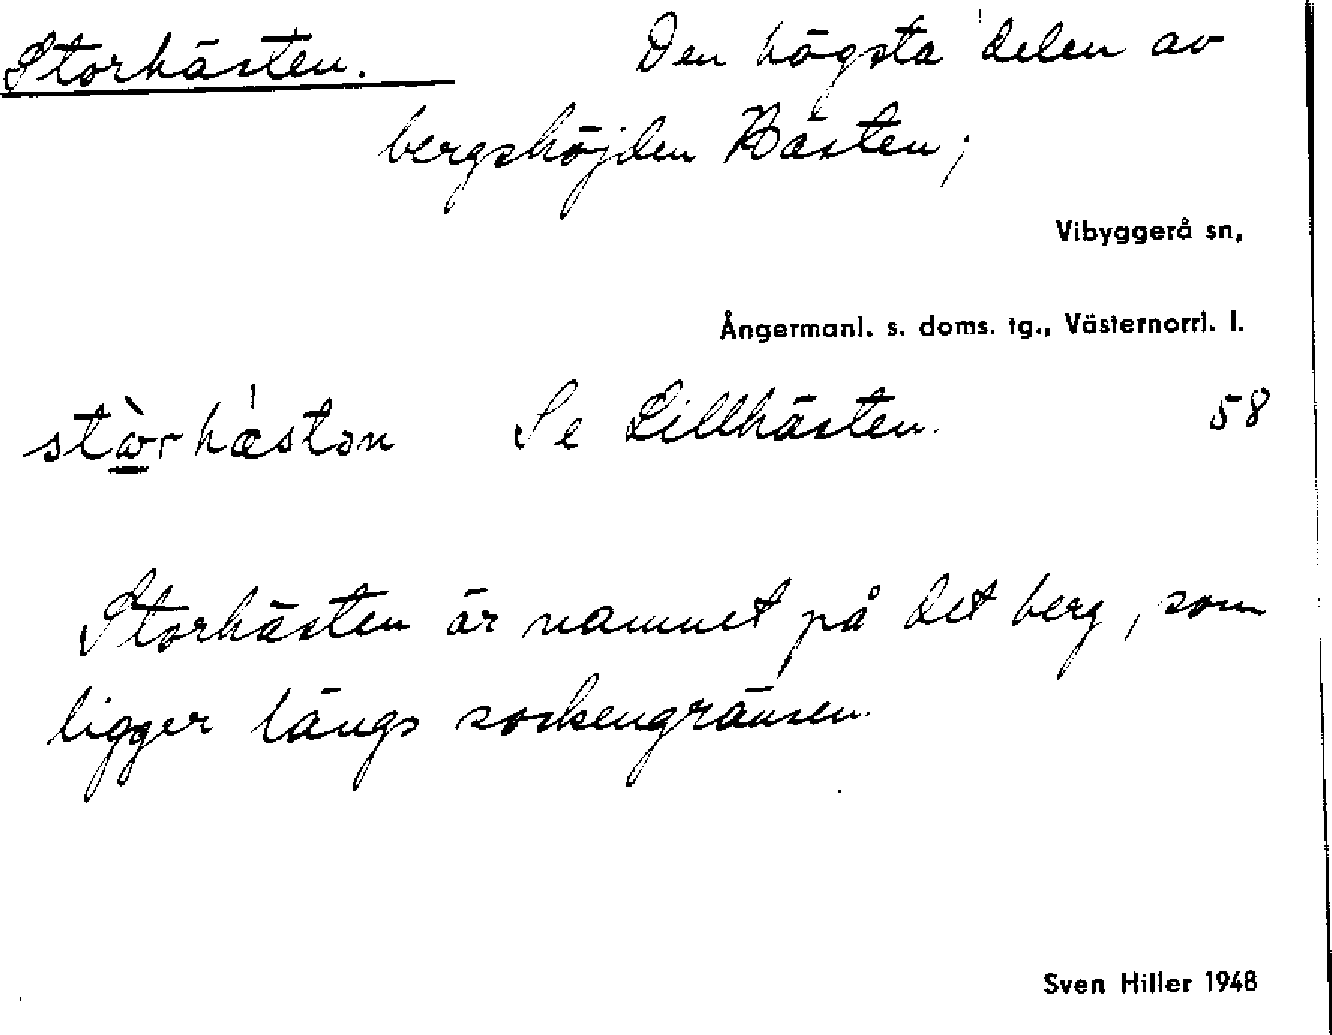 Storhästen. Den högsta delen av
bergshöjden Hästen;
Vibyggerå sn,
Ångermanl. s. doms. tg., Västernorrl. l.
stòrhǽstən Se Lillhästen. 58
Storhästen är namnet på det berg, som
ligger längs sockengränsen.
Sven Hiller 1948